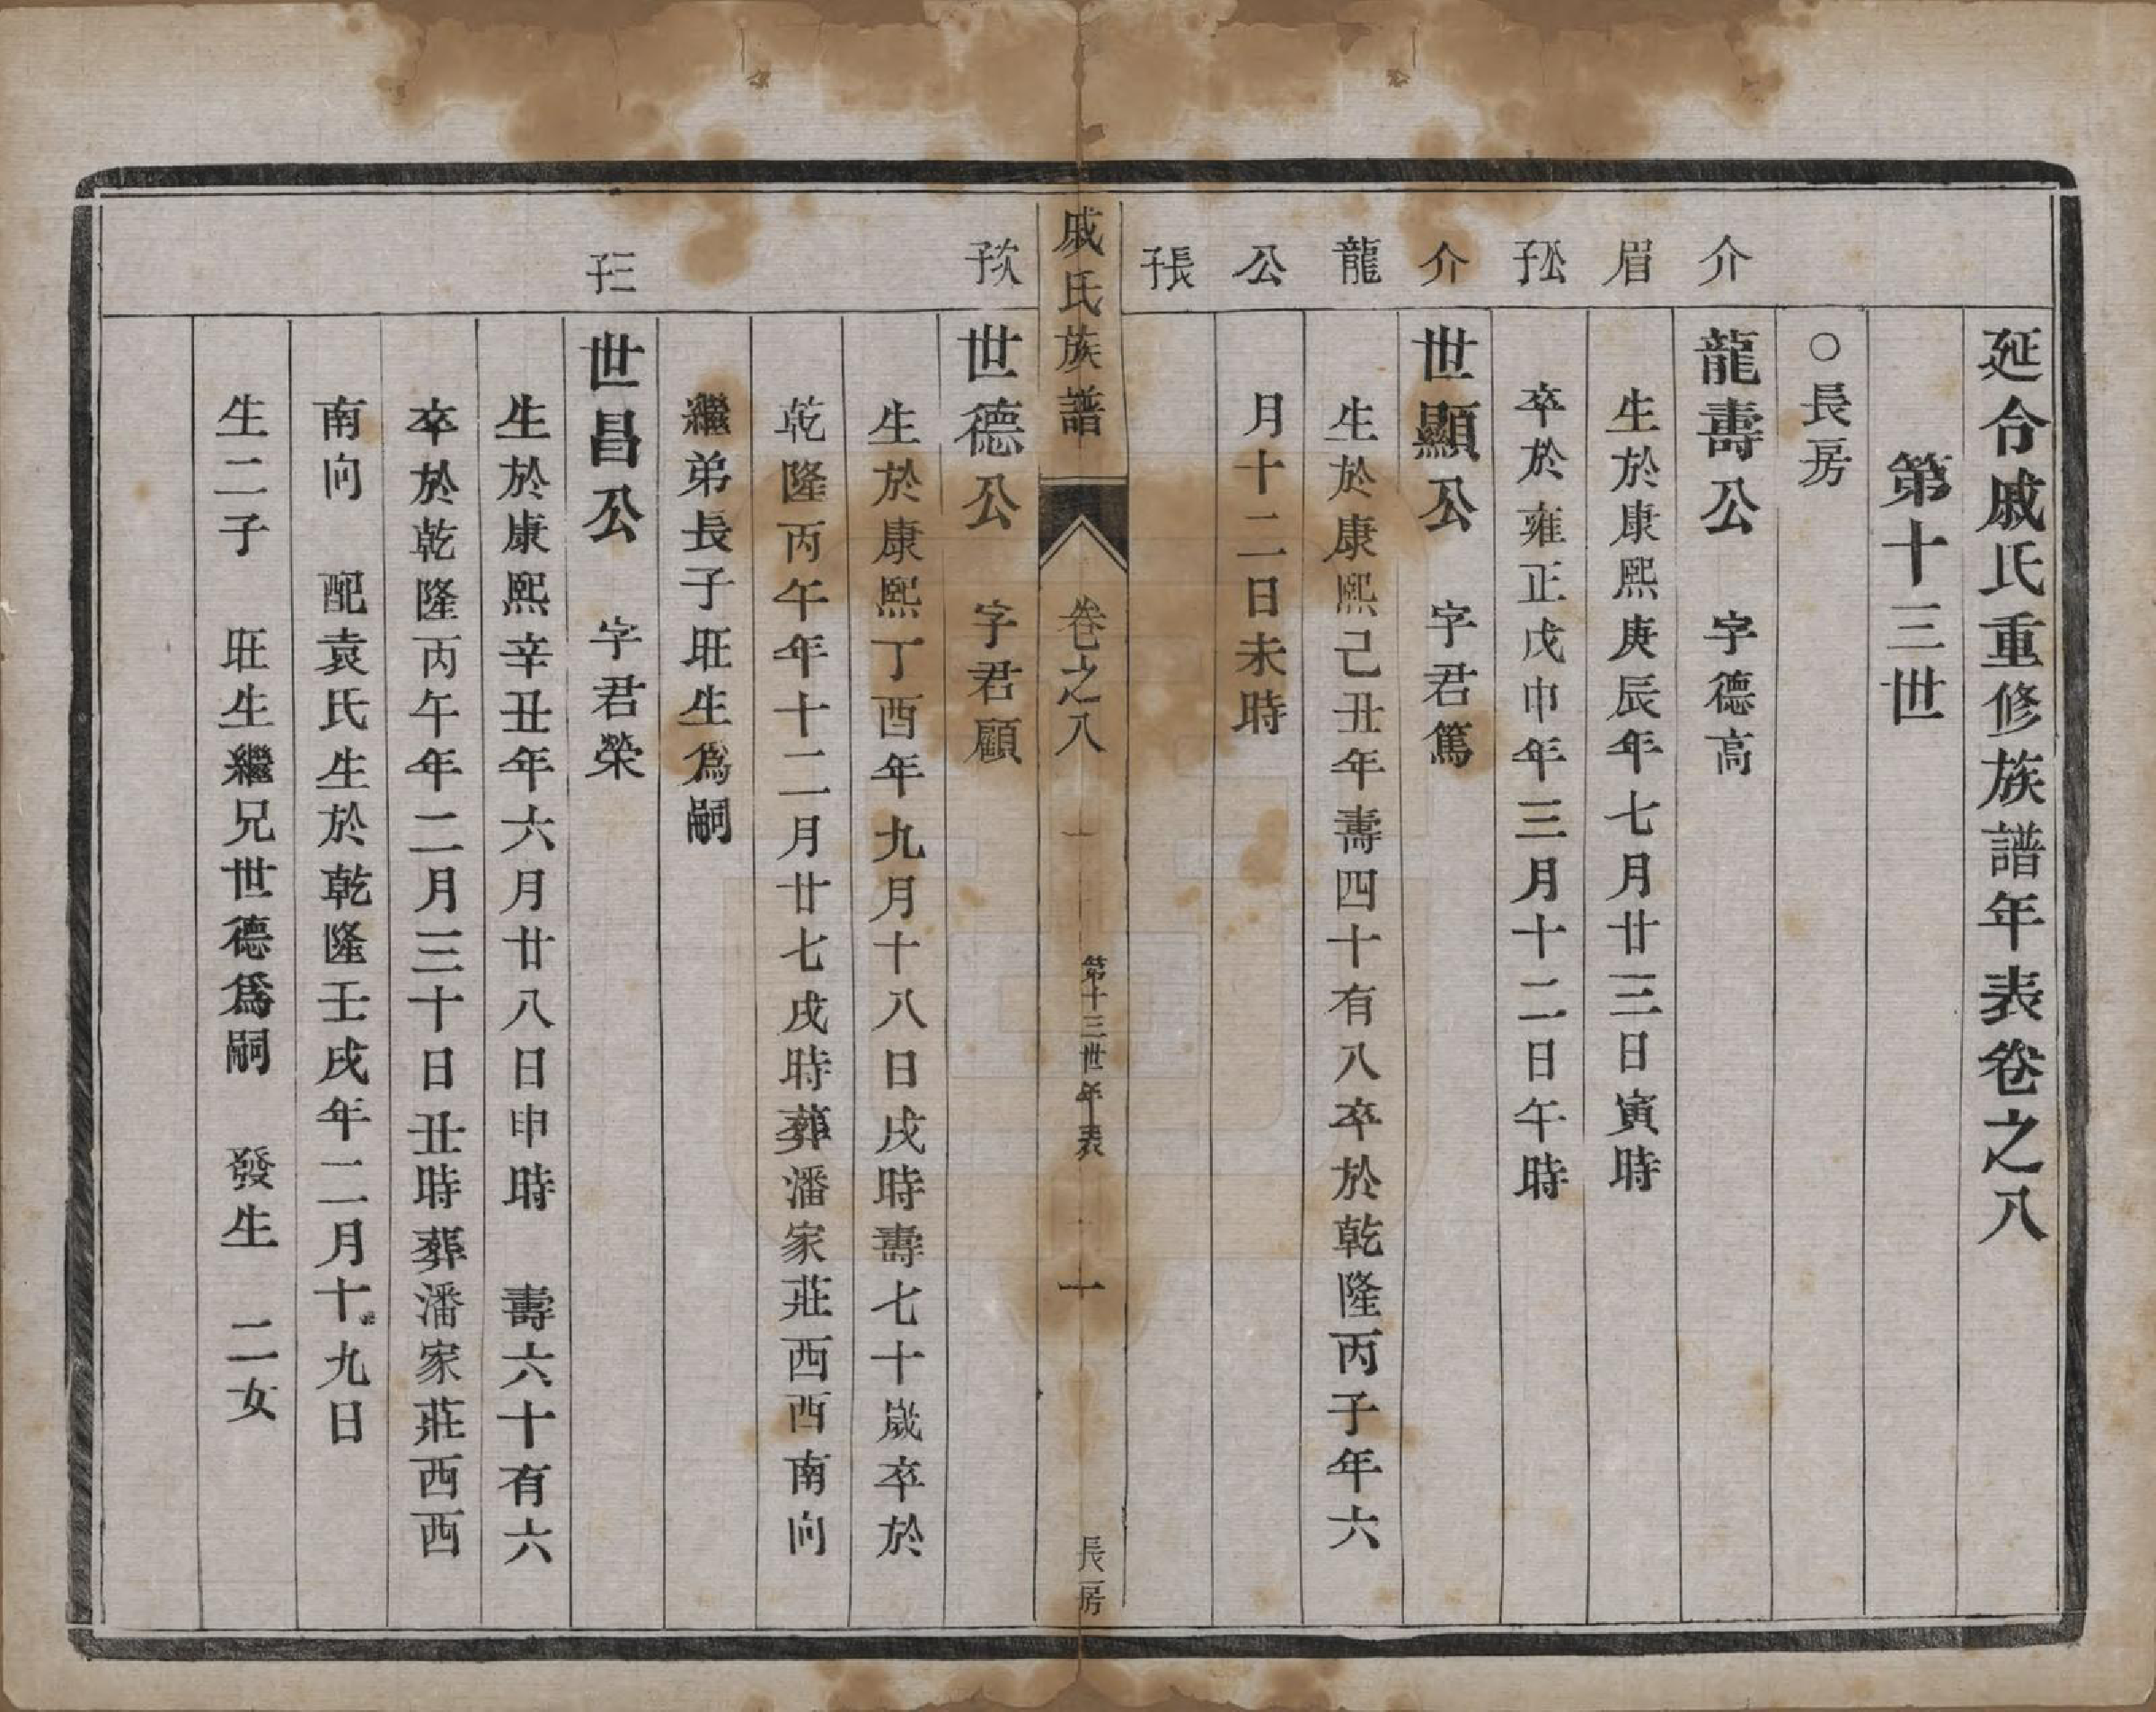 延令戚氏重修族譜年表卷之八
第十三世
○長房
介眉公子
龍壽公 字德高
生於康熙庚辰年七月廿三日寅時
卒於雍正戊申年三月十二日午時
介龍公長子
世顯公 字君篤
生於康熙己丑年壽四十有八卒於乾隆丙子年六
月十二日未時
戚氏族譜 卷之八 第十三世年表 一 長房
次子
世德公 字君顧
生於康熙丁酉年九月十八日戌時壽七十歲卒於
乾隆丙午年十二月廿七戌時葬潘家莊西西南向
繼弟長子旺生爲嗣
三子
世昌公 字君榮
生於康熙辛丑年六月廿八日申時 壽六十有六
卒於乾隆丙午年二月三十日丑時葬潘家莊西西
南向 配袁氏生於乾隆壬戌年二月十九日
生二子 旺生繼兄世德爲嗣 發生 二女